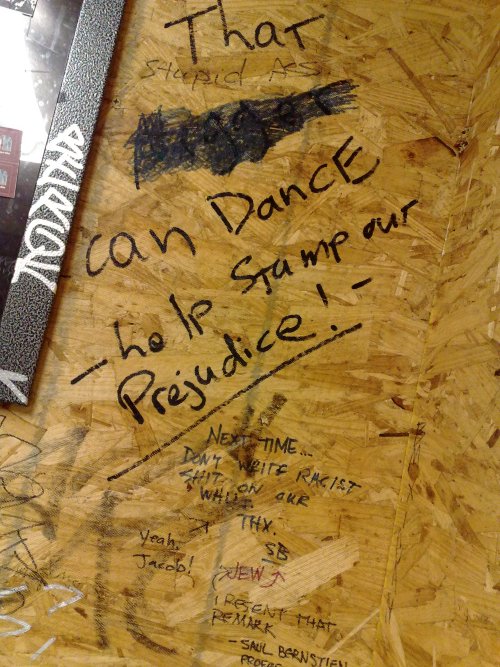 That
Stupid Ass
Nigger
can Dance
- help Stamp out
Prejudice! -
NEXT TIME...
DON'T WRITE RACIST
SHIT ON OUR
WALL
THX.
SB
Yeah,
Jacob!
JEW
I RESENT THAT
REMARK
- SAUL BERNSTIEN